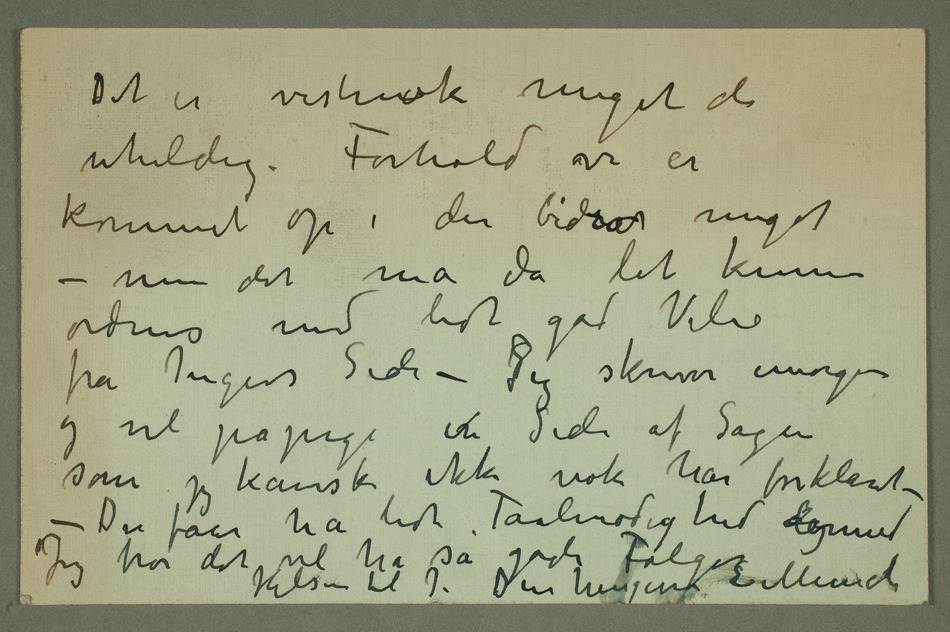 Det er vistnok meget de
uheldig. Forhold vi er
kommet op i der bidrar meget
– men det må da let kunne
ordnes med lidt god Vilie
fra Ingers Side – Jeg skriver imorgen
og vil påpege en Side af Sagen
som jeg kanske ikke nok har forklaret –
– Du faar ha lidt Taalmodighed dermed
Jeg tror det vil ha så gode Følger
Hilsen til I. Din hengivne E. Munch